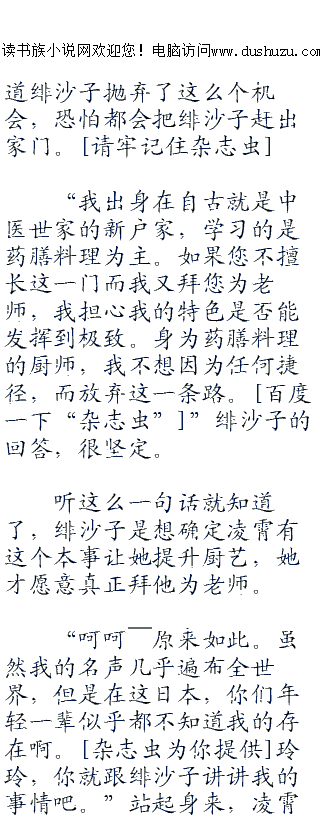 读书族小说网欢迎您！电脑访问www.dushuzu.com
道绯沙子抛弃了这么个机
会，恐怕都会把绯沙子赶出
家门。[请牢记住杂志虫]
“我出身在自古就是中
医世家的新户家，学习的是
药膳料理为主。如果您不擅
长这一门而我又拜您为老
师，我担心我的特色是否能
发挥到极致。身为药膳料理
的厨师，我不想因为任何捷
径，而放弃这一条路。[百度
一下“杂志虫”]”绯沙子的
回答，很坚定。
听这么一句话就知道
了，绯沙子是想确定凌霄有
这个本事让她提升厨艺，她
才愿意真正拜他为老师。
“呵呵——原来如此。虽
然我的名声几乎遍布全世
界，但是在这日本，你们年
轻一辈似乎都不知道我的存
在啊。[杂志虫为你提供]玲
玲，你就跟绯沙子讲讲我的
事情吧。”站起身来，凌霄